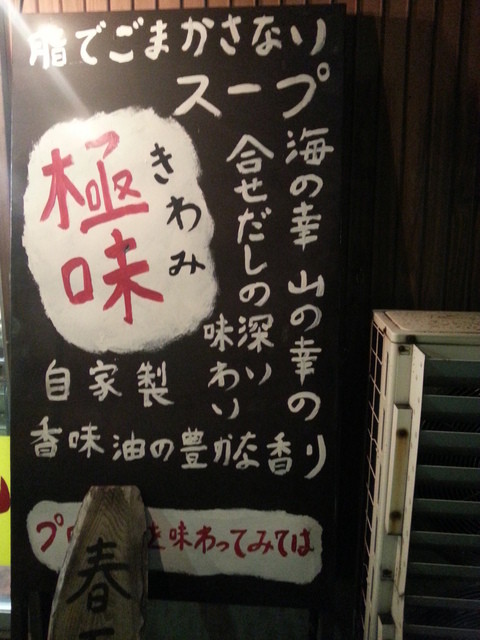 脂でごまかさない
スープ
海の幸 山の幸の
合せだしの深い
味わい
極味
きわみ
自家製
香味油の豊かな香り
プ
を味わってみては
春